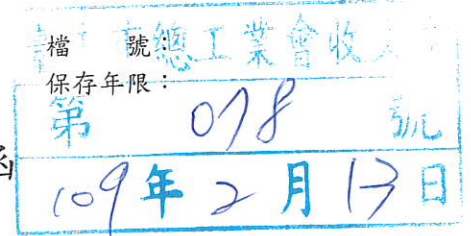 檔 號：
保存年限：
總工業會收
第 078 號
函
109年2月13日